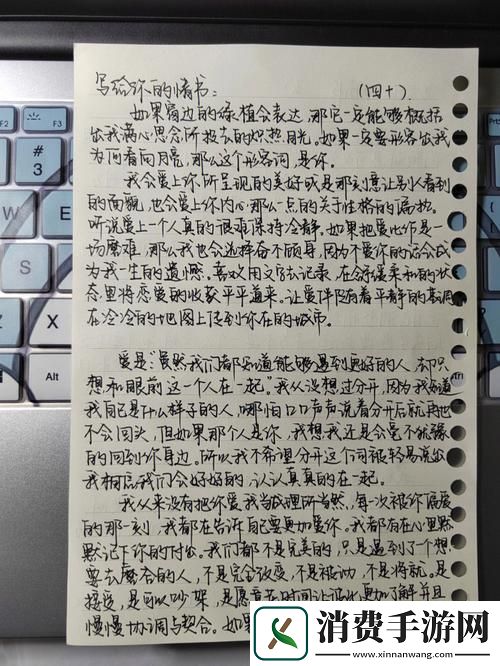 写给你的情书： （四十）
如果窗边的绿植会表达，那它一定能够概括
出我满心思念所投去的炽热目光。如果一定要形容出我
为何看向月亮，那么这个形容词，是你。
我会爱上你所呈现的美好或是那刻意让别人看到
的面貌，也会爱上你内心那么一点的关于性格的偏执。
听说爱上一个人真的很难保持冷静，如果把爱比作是一
场磨难，那么我也会选择奋不顾身，因为不爱你的话会成
为我一生的遗憾。喜欢用文字去记录，在舒缓柔和的状
态里将恋爱的收获平平道来。让爱伴随着平静的基调
在冷冷的地图上传到你在的城市。
爱是“虽然我们都知道能够遇到更好的人，却只
想和眼前这一个人在一起。”我从没想过分开，因为我知道
我自己是什么样子的人，哪怕口口声声说着分开后就再也
不会回头，但如果那个人是你，我想我还是会毫不犹豫
的回到你身边。所以我不希望分开这个词被轻易说出
我相信我们会好好的，认认真真的在一起。
我从来没有把你爱我当成理所当然，每一次被你偏爱
的那一刻，我都在告诉自己要更加爱你。我都有在心里默
默记下你的付出。我们都不是完美的，只是遇到了个想
要去磨合的人，不是完全改变，不是被动，不是将就。是
接受，是可以吵架，是愿意花时间让彼此更加了解并且
慢慢协调与契合。如果
消费手游网
www.xinnanwang.com
F2
F3
#
3